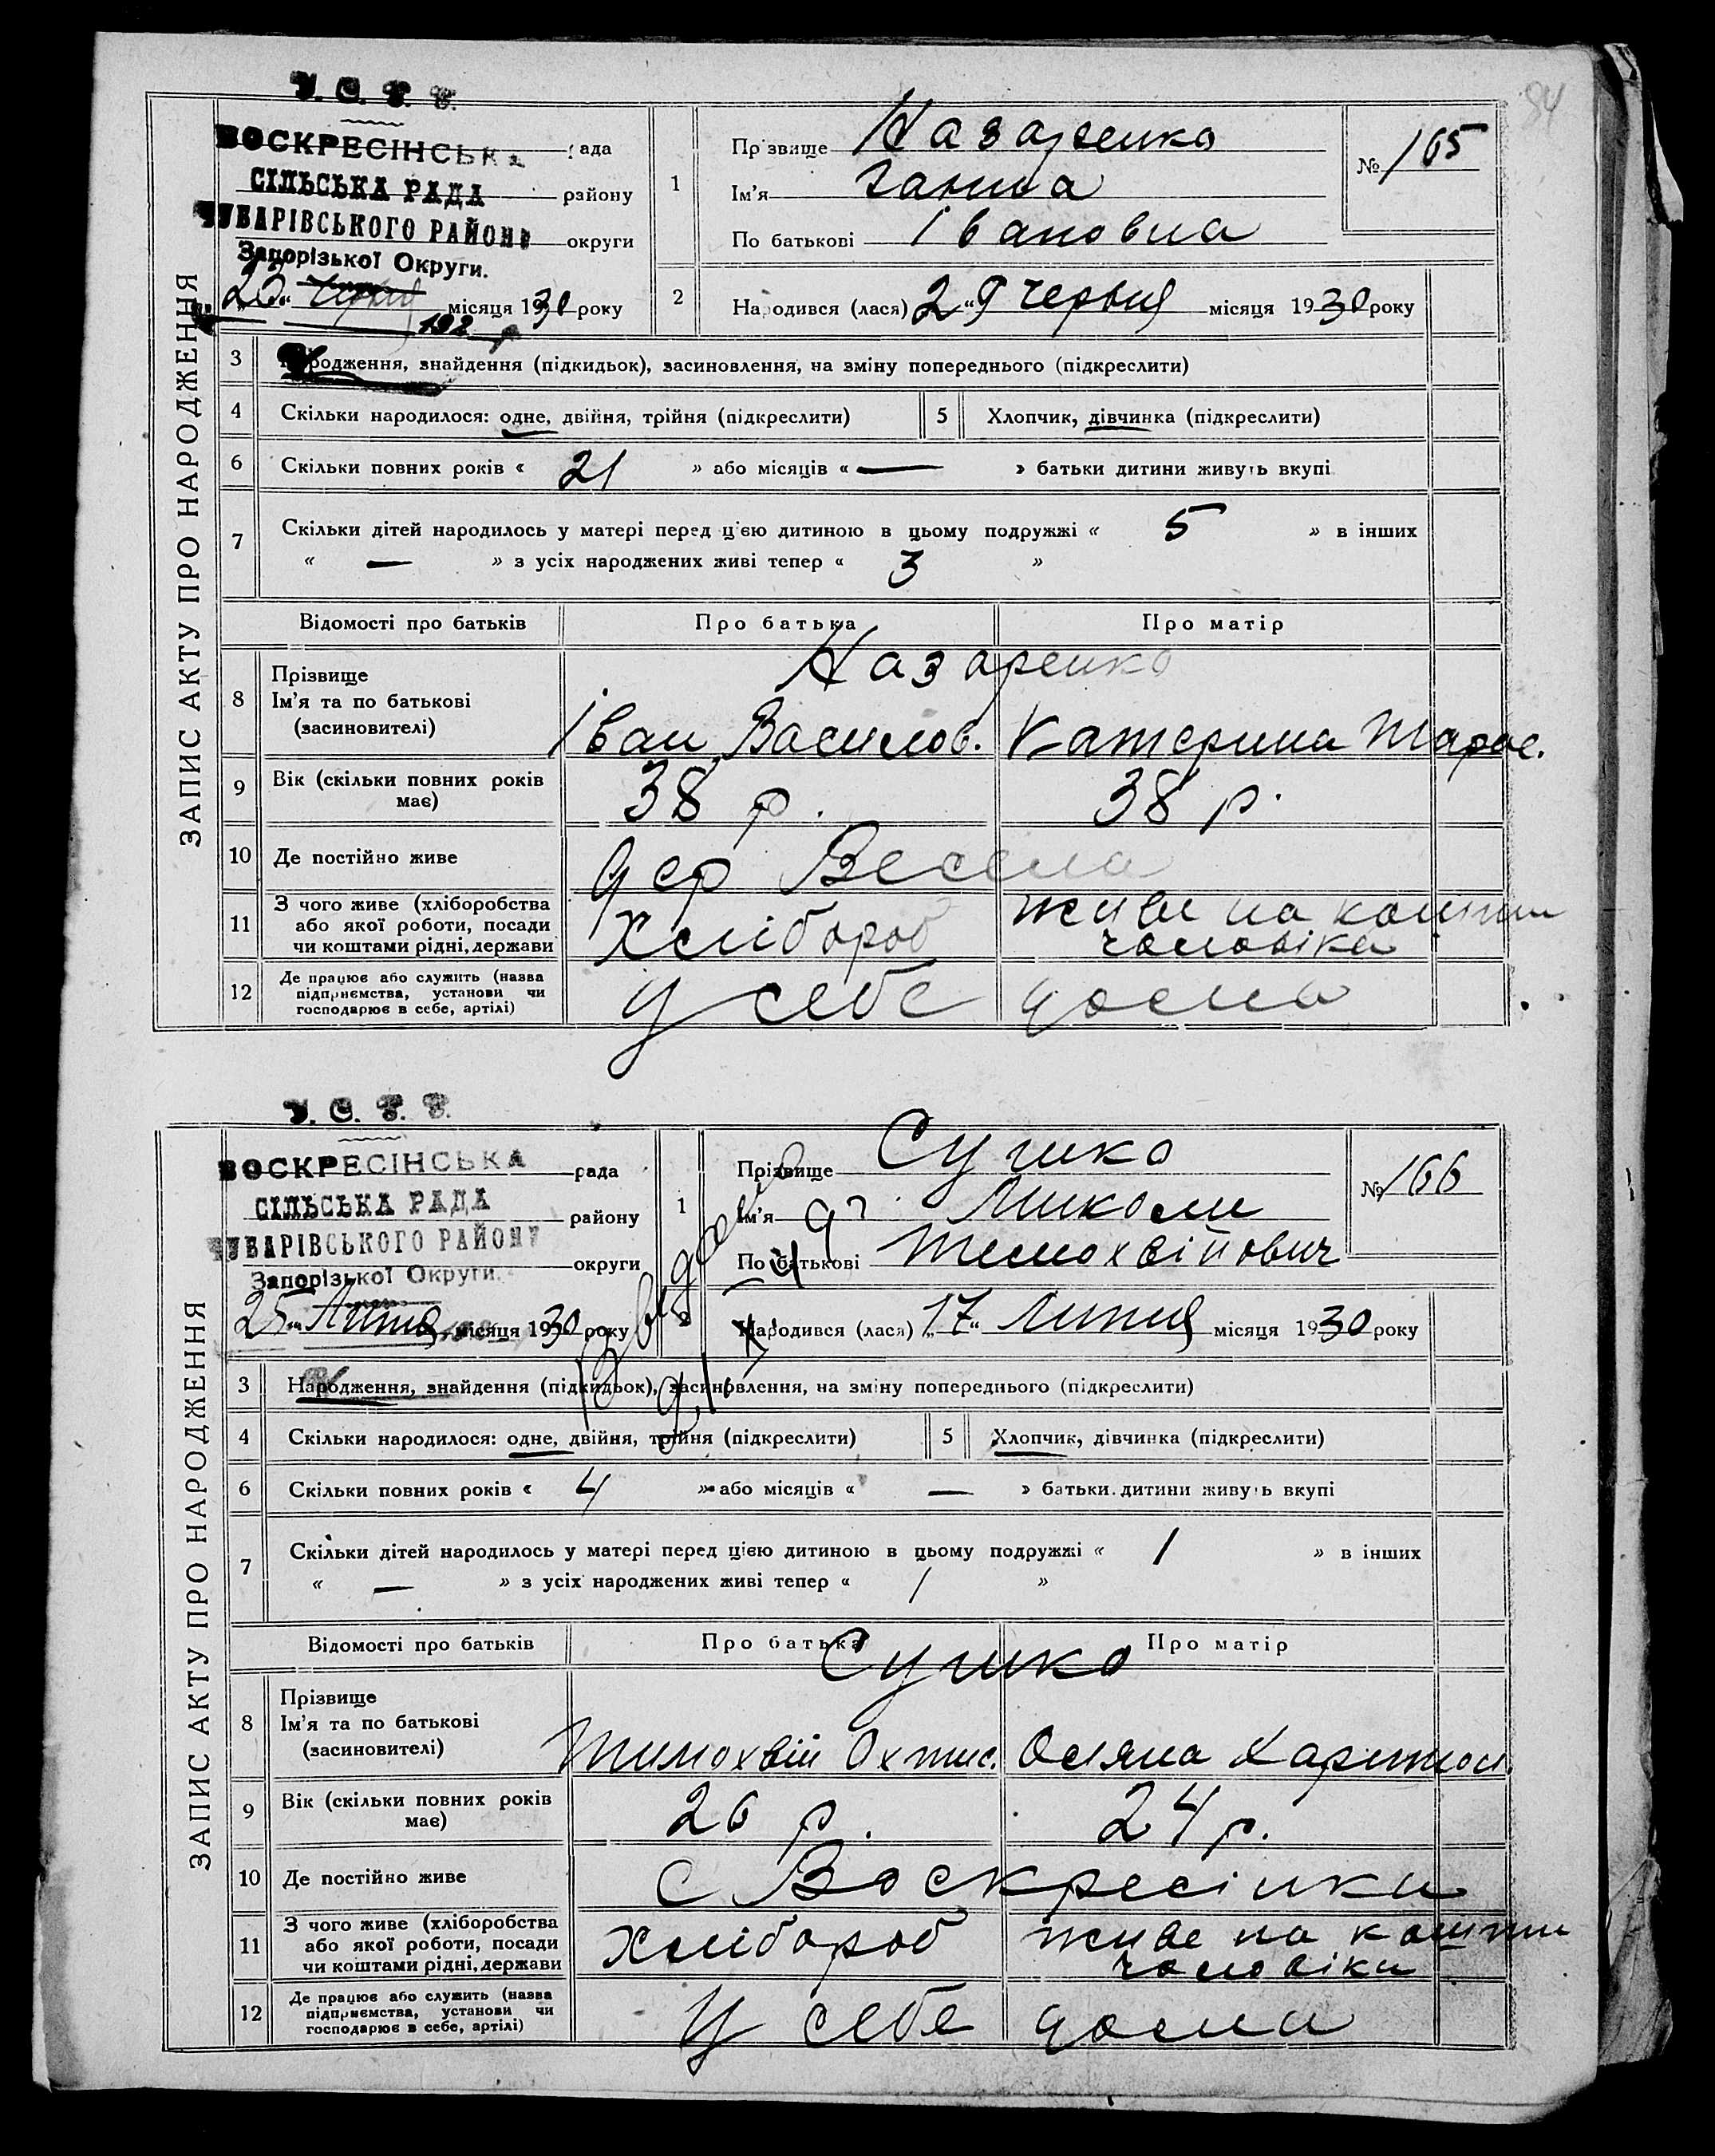 84
У. С. Р. Р.
ВОСКРЕСІНСЬКА рада
СІЛЬСЬКА РАДА району
ЧУБАРІВСЬКОГО РАЙОНУ округи
Запорізької Округи.
місяця 1930 року
ЗАПИС АКТУ ПРО НАРОДЖЕННЯ
1 Прізвище Назаренко
Ім'я Ганна
По батькові Івановна
№ 165
2 Народився (лася) 29 червня місяця 1930 року
3 Народження, знайдення (підкидьок), засиновлення, на зміну попереднього (підкреслити)
4 Скільки народилося: одне, двійня, трійня (підкреслити) 5 Хлопчик, дівчинка (підкреслити)
6 Скільки повних років « 21 » або місяців « — » батьки дитини живуть вкупі
7 Скільки дітей народилось у матері перед цією дитиною в цьому подружжі « 5 » в інших
« — » з усіх народжених живі тепер « 3 »
Відомості про батьків Про батька Про матір
Назаренко
8 Прізвище
Ім'я та по батькові
(засиновителі)
Іван Василов. Катерина Тарас.
9 Вік (скільки повних років має) 38 р. 38 р.
10 Де постійно живе дер Весела
11 З чого живе (хліборобства
або якої роботи, посади
чи коштами рідні, держави
Хлібороб живе на кошти
чоловіка
12 Де працює або служить (назва
підприємства, установи чи
господарює в себе, артілі)
У себе дома
У. С. Р. Р.
ВОСКРЕСІНСЬКА рада
СІЛЬСЬКА РАДА району
ЧУБАРІВСЬКОГО РАЙОНУ округи
Запорізької Округи.
25 Липня місяця 1930 року
ЗАПИС АКТУ ПРО НАРОДЖЕННЯ
1 Прізвище Сушко
Ім'я Миколи
По батькові Темохвійович
№ 166
Народився (лася) „17“ Липня місяця 1930 року
3 Народження, знайдення (підкидьок), засиновлення, на зміну попереднього (підкреслити)
4 Скільки народилося: одне, двійня, трійня (підкреслити) 5 Хлопчик, дівчинка (підкреслити)
6 Скільки повних років « 4 » або місяців « — » батьки дитини живуть вкупі
7 Скільки дітей народилось у матері перед цією дитиною в цьому подружжі « 1 » в інших
« — » з усіх народжених живі тепер « 1 »
Відомості про батьків Про батька Про матір
Сушко
8 Прізвище
Ім'я та по батькові
(засиновителі)
Тимохвій Охтис. Оляна Харитон.
9 Вік (скільки повних років має) 26 р. 24 р.
10 Де постійно живе с Воскресінки
11 З чого живе (хліборобства
або якої роботи, посади
чи коштами рідні, держави
Хлібороб живе на кошти
чоловіка
12 Де працює або служить (назва
підприємства, установи чи
господарює в себе, артілі)
У себе дома